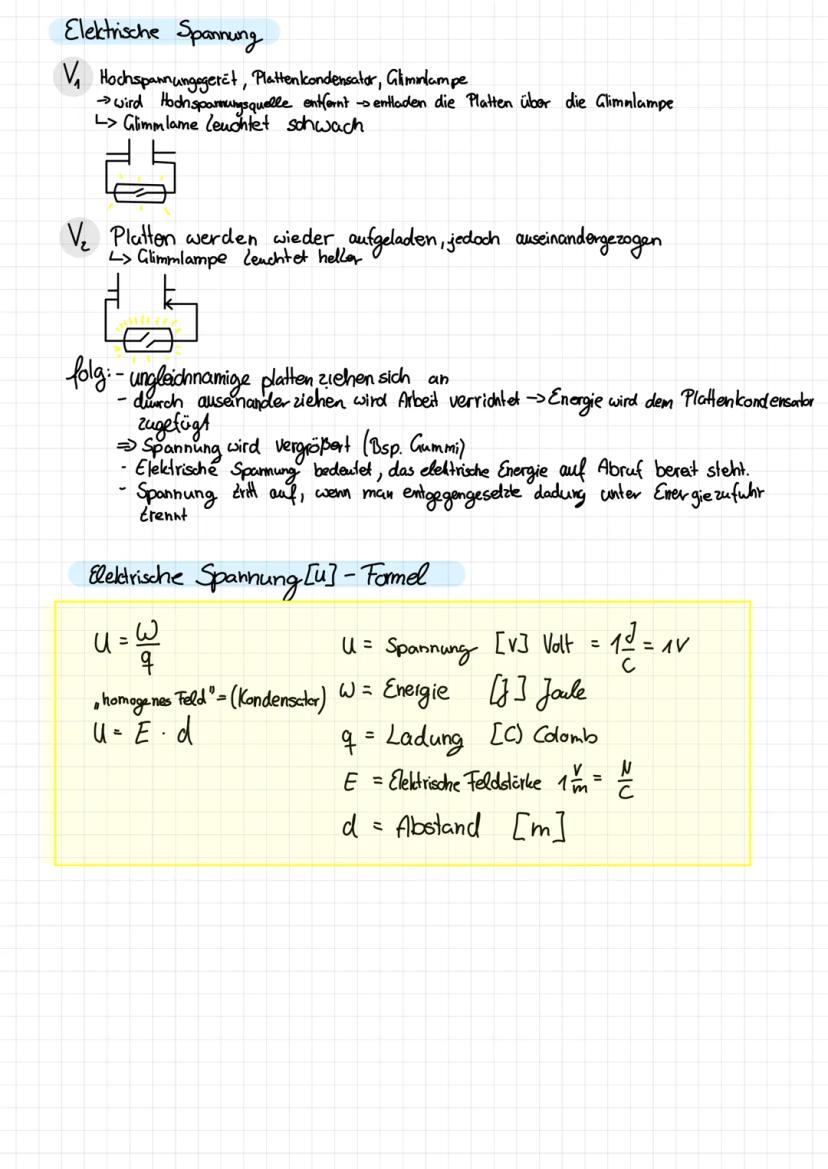 Elektrische Spannung
V₁ Hochspannungsgerät, Plattenkondensator, Glimmlampe
→ wird Hochspannungsquelle entfernt → entladen die Platten über die Glimmlampe
↳ Glimmlame leuchtet schwach
V₂ Platten werden wieder aufgeladen, jedoch auseinandergezogen
↳ Glimmlampe leuchtet heller
folg: - ungleichnamige platten ziehen sich an
- durch auseinander ziehen wird Arbeit verrichtet → Energie wird dem Plattenkondensator
zugefügt
⇒ Spannung wird vergrößert (Bsp. Gummi)
- Elektrische Spannung bedeutet, das elektrische Energie auf Abruf bereit steht.
- Spannung tritt auf, wenn man entgegengesetzte Ladung unter Energiezufuhr
trennt
Elektrische Spannung [u] - Formel
U = W/q
U = Spannung [V] Volt = 1 J/C = 1V
„homogenes Feld" = (Kondensator)
W = Energie [J] Joule
U = E · d
q = Ladung [C] Colomb
E = Elektrische Feldstärke 1 V/m = N/C
d = Abstand [m]